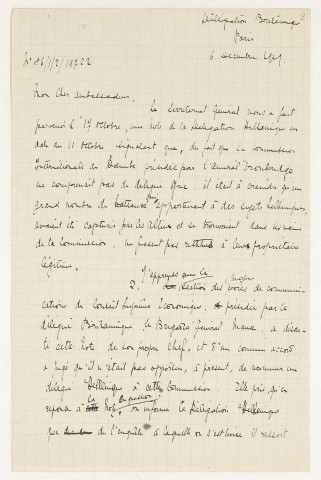 Délégation Britannique
Paris
6 Décembre 1919
Mon Cher Ambassadeur,
Le Secrétariat Général nous a fait
parvenir le 17 octobre, une note de la Délégation Hellénique en
date du 11 octobre signalant que, du fait que la Commission
Internationale du Danube présidée par l'Amiral Troubridge
ne comprenait pas de délégué Grec, il était à craindre qu'un
grand nombre de bateaux appartenant à des sujets helléniques,
avaient été capturés par les Alliés et se trouvaient dans les mains
de la Commission, ne fussent pas restitués à leurs propriétaires
légitimes.
2. J'apprends que la section des voies de communi-
cations du Conseil Suprême Economique, présidée par le
délégué Britannique, le Brigadier Général, a discu-
té cette note de son propre chef, et d'un commun accord
a jugé qu'il n'était pas opportun, à présent, de nommer un
délégué Hellénique à cette Commission. Elle prie, qu'en
réponse à la note, on informe la Délégation Hellénique
que de l'enquête à laquelle on s'est livré il ressort